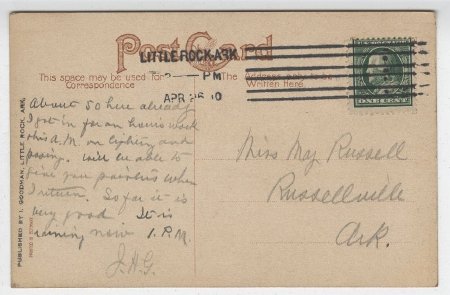 Post Card
LITTLE ROCK, ARK
PM
APR 26 10
This space may be used for
Correspondence
The Address only to be
Written Here.
ONE CENT
About 50 here already
I got in for an hour's work
this A.M. on lighting and
posing. Will be able to
give you pointers when
I return. So far it is
very good It is
raining now 1. P.M.
J.H.G.
Miss May Russell
Russellville
Ark.
PUBLISHED BY I. GOODMAN, LITTLE ROCK, ARK.